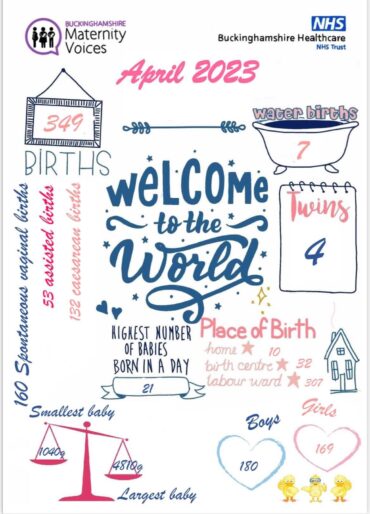 BUCKINGHAMSHIRE
Maternity
Voices
NHS
Buckinghamshire Healthcare
NHS Trust
April 2023
349
BIRTHS
water births
7
Twins
4
160 Spontaneous vaginal births
53 assisted births
132 caesarean births
WELCOME
to the
World
HIGHEST NUMBER
OF BABIES
BORN IN A DAY
21
Place of Birth
home 10
birth centre 32
labour ward 307
Smallest baby
1040g
4810g
Largest baby
Boys
180
Girls
169